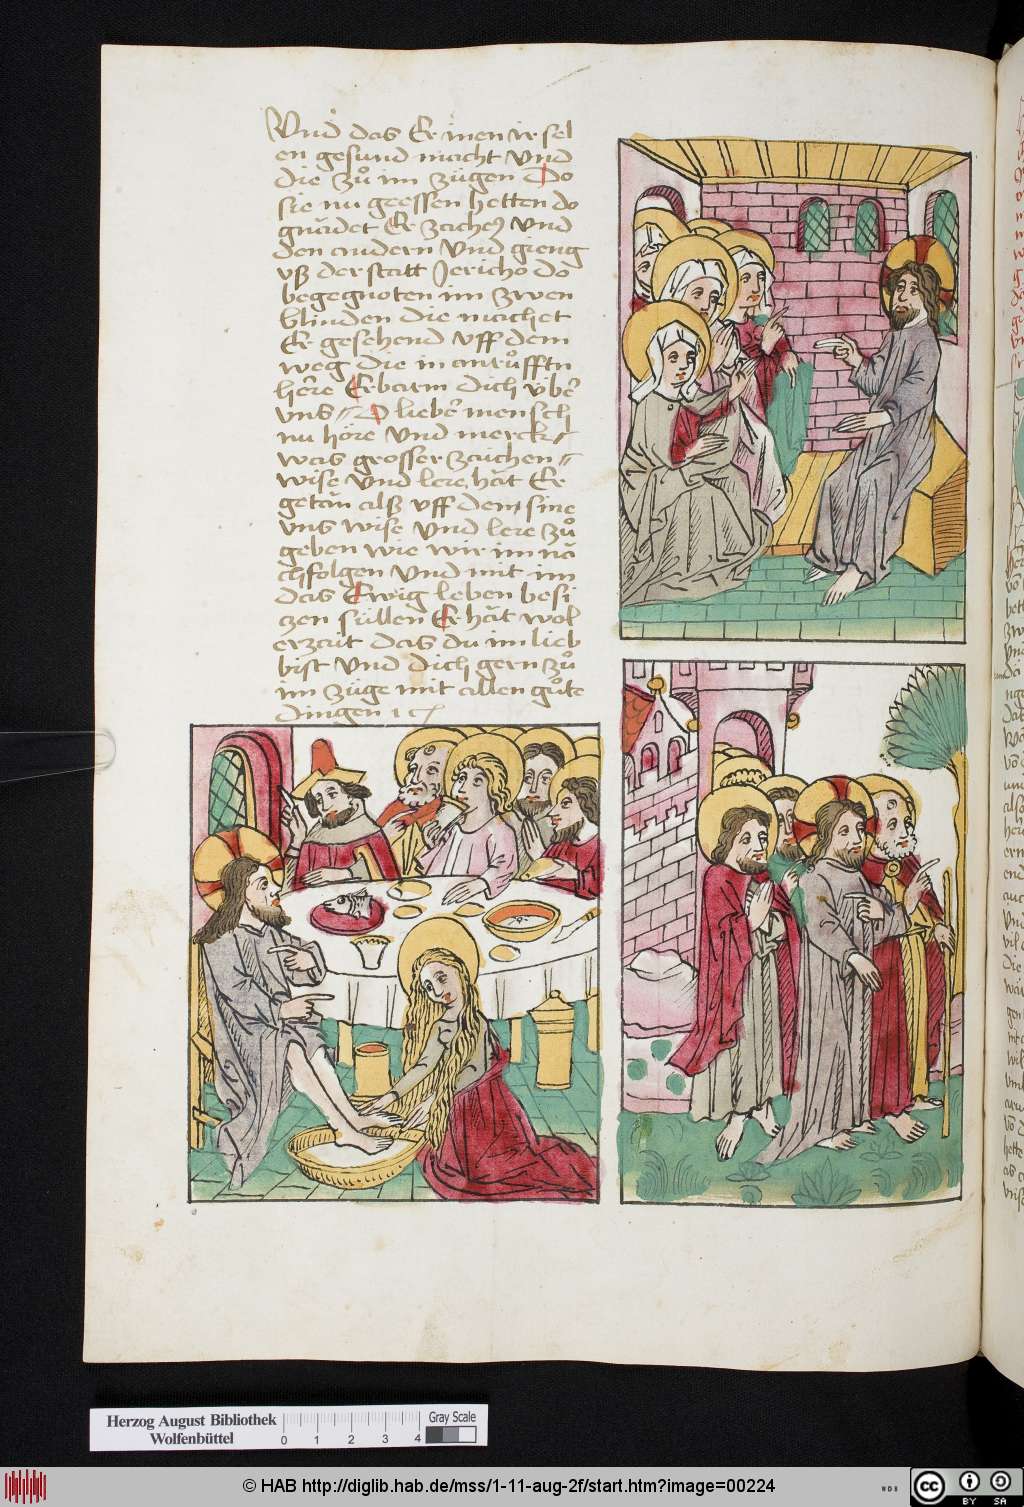 Und das Er inen ir sel
en gesund macht Und
die zů im zügen Do
sie nu geessen hetten do
gnadet Er zacheo Und
den andern Und gieng
uß der statt Jericho do
begegnoten im zwen
blinden die machet
Er gesehend uff dem
weg die in anrůfftn
here Erbarm dich über
uns O lieber mensch
nu höre Und merck
was grosser zaichen
wise Und lere hăt Er
getăn alß uff dem sine
uns wise Und lere zů
geben wie wir im nă
chfolgen Und mit im
das Ewig leben besi
zen süllen Er hăt wol
erzait das du im lieb
bist Und dich gern zů
im züge mit allen gůte
dingen
Herzog August Bibliothek
Wolfenbüttel
0 1 2 3 4
Gray Scale
© HAB http://diglib.hab.de/mss/1-11-aug-2f/start.htm?image=00224
WDB
CC BY SA